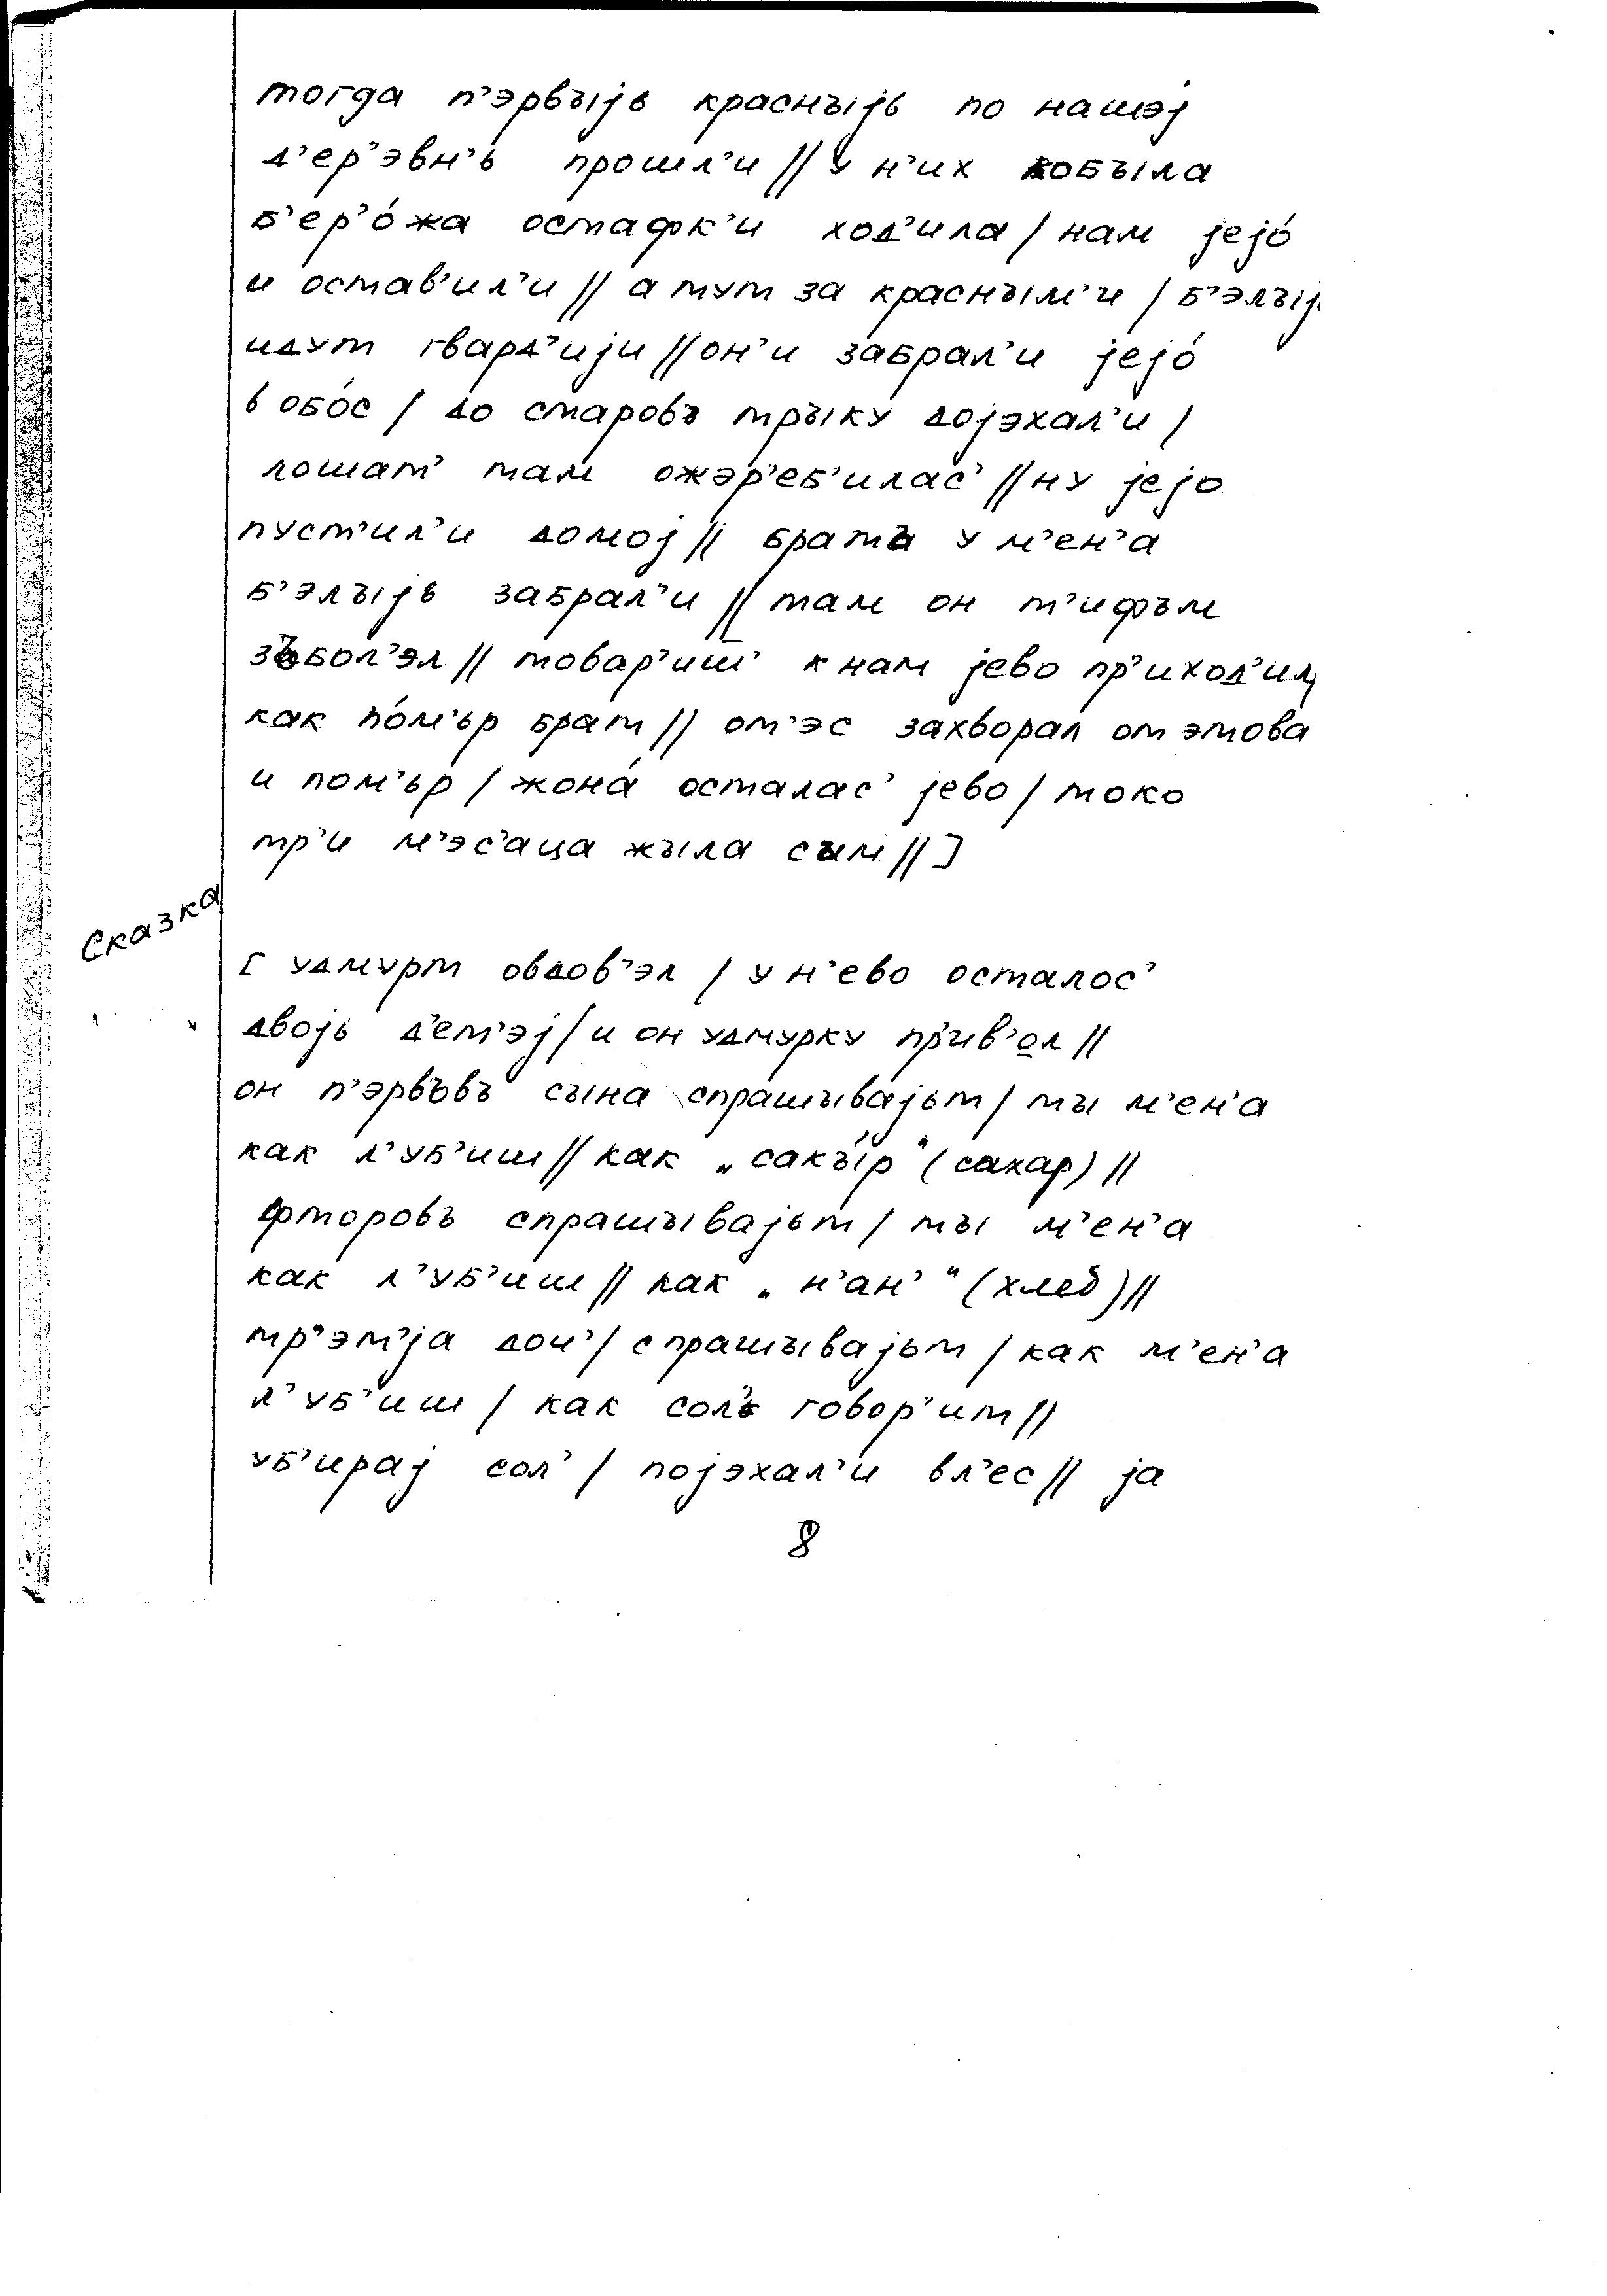 тогда п'эрвъıјь краснъıјь по нашэј
д'ер'эвн'ь прошл'и // у н'их кобъıла
б'ер'о́жа остафк'и ход'ила / нам јејо́
и остав'ил'и // а тут за краснъıм'и / б'элъıј
идут гвард'ији // он'и забрал'и јејо́
в обо́с / до старовъ тръıку дојэхал'и /
лошат' там ожэр'еб'илас' // ну јејо
пуст'ил'и домој // брата у м'ен'а
б'элъıјь забрал'и // там он т'ифъм
зъбол'эл // товар'иш' к нам јево пр'иход'ил
как по́м'ьр брат // от'эс захворал от этова
и пом'ьр / жона́ осталас' јево / токо
тр'и м'эс'аца жъıла сым // ]
Сказка
[ удмурт овдов'эл / у н'ево осталос'
двојь д'ет'эј / и он удмурку пр'ив'ол //
он п'эрвъвъ съıна спрашъıвајьт / тъı м'ен'а
как л'уб'иш // как „сакъı́р" (сахар) //
фторовъ спрашъıвајьт / тъı м'ен'а
как л'уб'иш // как „н'ан'" (хлеб) //
тр'эт'ја доч' / спрашъıвајьт / как м'ен'а
л'уб'иш / как сол' говор'ит //
уб'ирај сол' / појэхал'и в л'ес // ја
8